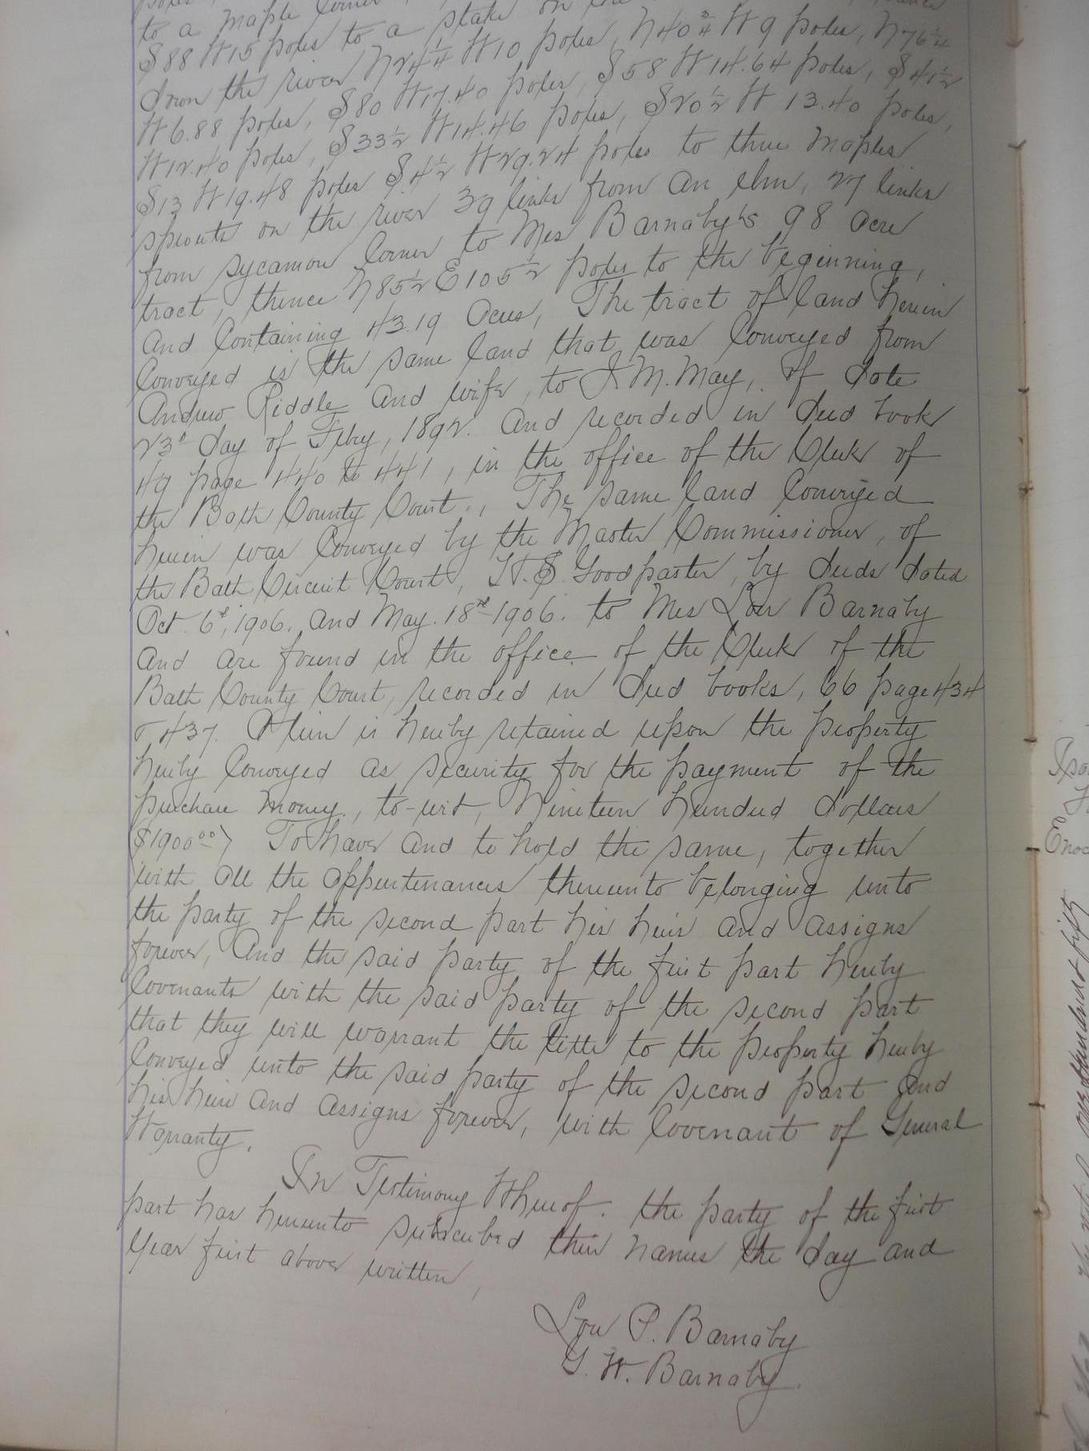 to a maple corner
S88 W15 poles to a stake on the
down the river N24¼ W10 poles, N40¾ W9 poles, N76¼
W6.88 poles, S80 W17.40 poles, S58 W14.64 poles, S41½
W12.40 poles, S33½ W14.46 poles, S20½ W13.40 poles,
S13 W19.48 poles S.4½ W29.24 poles to three maples
sprouts on the river 39 links from an elm, 27 links
from sycamore corner to Mrs Barnaby's 98 acre
tract, thence N85½ E105½ poles to the beginning,
and containing 43.19 acres, The tract of land herein
conveyed is the same land that was conveyed from
Andrew Riddle and wife, to J M. May, of date
23d day of Feby, 1892. and recorded in deed book
49 page 440 to 441, in the office of the Clerk of
the Bath County Court., The same land conveyed
herein was conveyed by the Master Commissioner, of
the Bath Circuit Court, W.S. Goodpaster, by deeds dated
Oct. 6th, 1906. and May. 18th 1906. to Mrs Lou Barnaby
and are found in the office of the Clerk of the
Bath County Court, recorded in deed books, 66 page 434
437. A lien is hereby retained upon the property
hereby conveyed as security for the payment of the
purchase money, to-wit, Nineteen hundred dollars
$1900.00) To have and to hold the same, together
with all the appurtenances thereunto belonging unto
the party of the second part his heirs and assigns
forever, and the said party of the first part hereby
covenants with the said party of the second part
that they will warrant the title to the property hereby
conveyed unto the said party of the second part and
his heirs and assigns forever, with covenant of General
Warranty.
In Testimony Whereof. the party of the first
part has hereunto subscribed their names the day and
year first above written,
Lou P. Barnaby
G. W. Barnaby.